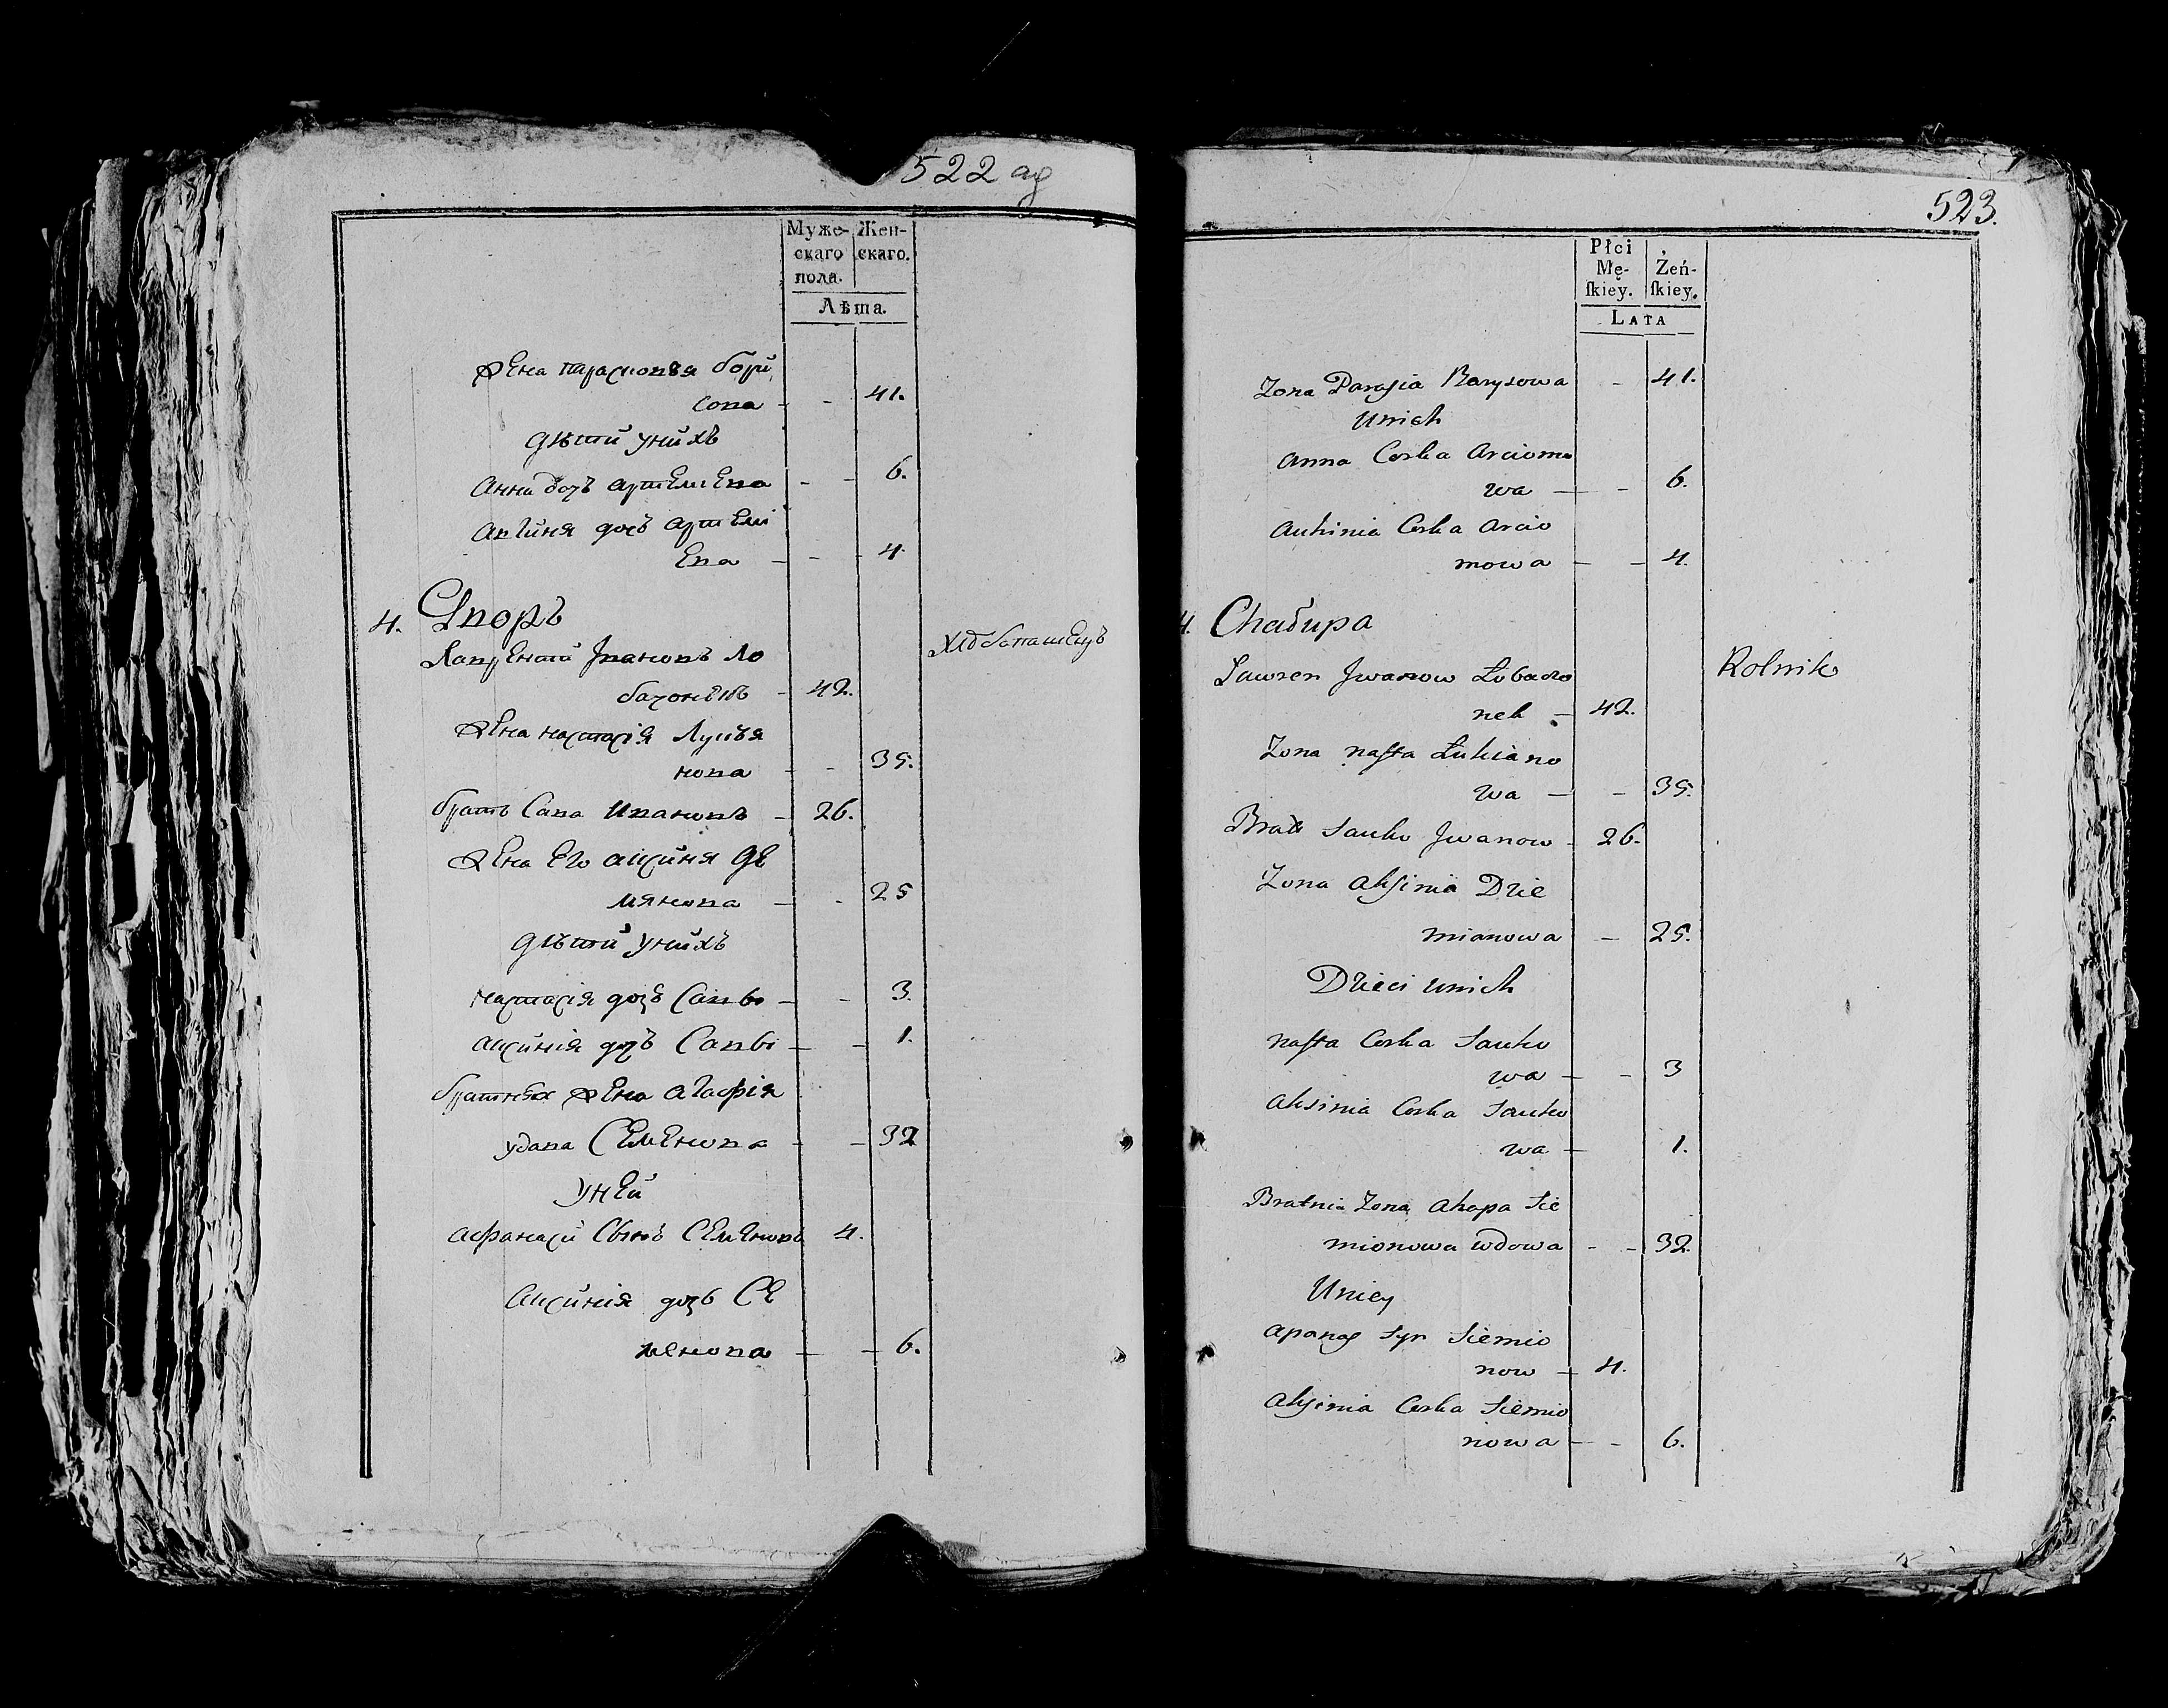 522 ад
Муже- Жен-
скаго скаго.
пола.
Лѣта.
жена парасковья бори
сова - - 41.
дѣти у нихъ
Анна дочъ артемиева - - 6.
авгиня дочъ артеми
ева - - 4.
4. Дворъ
Лаврентий Иванов Ло
бачонѣкъ - 42.
хлѣбопашецъ
жена настасія Лукья
нова - - 35.
братъ Сава Ивановъ - 26.
жена его аксиня де
мянова - - 25
дѣти у нихъ
настасія дочъ Савы - - 3.
аксинія дочъ Савы - - 1.
жена агафія
удава Семенова - - 32
у ней
афанаси Сынъ Семеновъ 4.
Аксинія дочь Се
менова - - 6.
523.
Płci
Mę- Żeń-
ſkiey. ſkiey.
LATA
Zona Parasia Barysowa - 41.
Unich
Anna Corka Arciomo
wa - - 6.
Auhinia Corka Arcio
mowa - - 4.
4. Chałupa
Lawren Jwanow Łobaczo
nek - 42.
Rolnik
Zona Nasta Łukiano
wa - - 35.
Brat Sawko Jwanow - 26.
Zona Aksinia Dzie
mianowa - 25.
Dzieci unich
Nasta Corka Sawko
wa - - 3
Aksinia Corka Sawko
wa - 1.
Bratnia Zona Ahapa Sie
mionowa wdowa - - 32.
Uniey
Apanas Syn Siemio
now - 4.
Aksinia Corka Siemio
nowa - - 6.